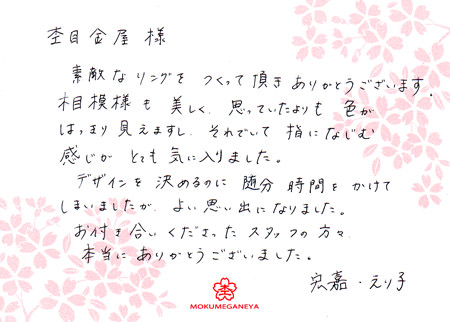 杢目金屋 様
素敵なリングを つくって頂き ありがとうございます.
相模様も 美しく、思っていたよりも 色が
はっきり見えますし、それでいて 指になじむ
感じが とても 気に入りました。
デザインを 決めるのに 随分 時間を かけて
しまいましたが、よい思い出になりました。
お付き合いくださった スタッフの方々、
本当に ありがとうございました。
宏嘉・えり子
杢
MOKUMEGANEYA